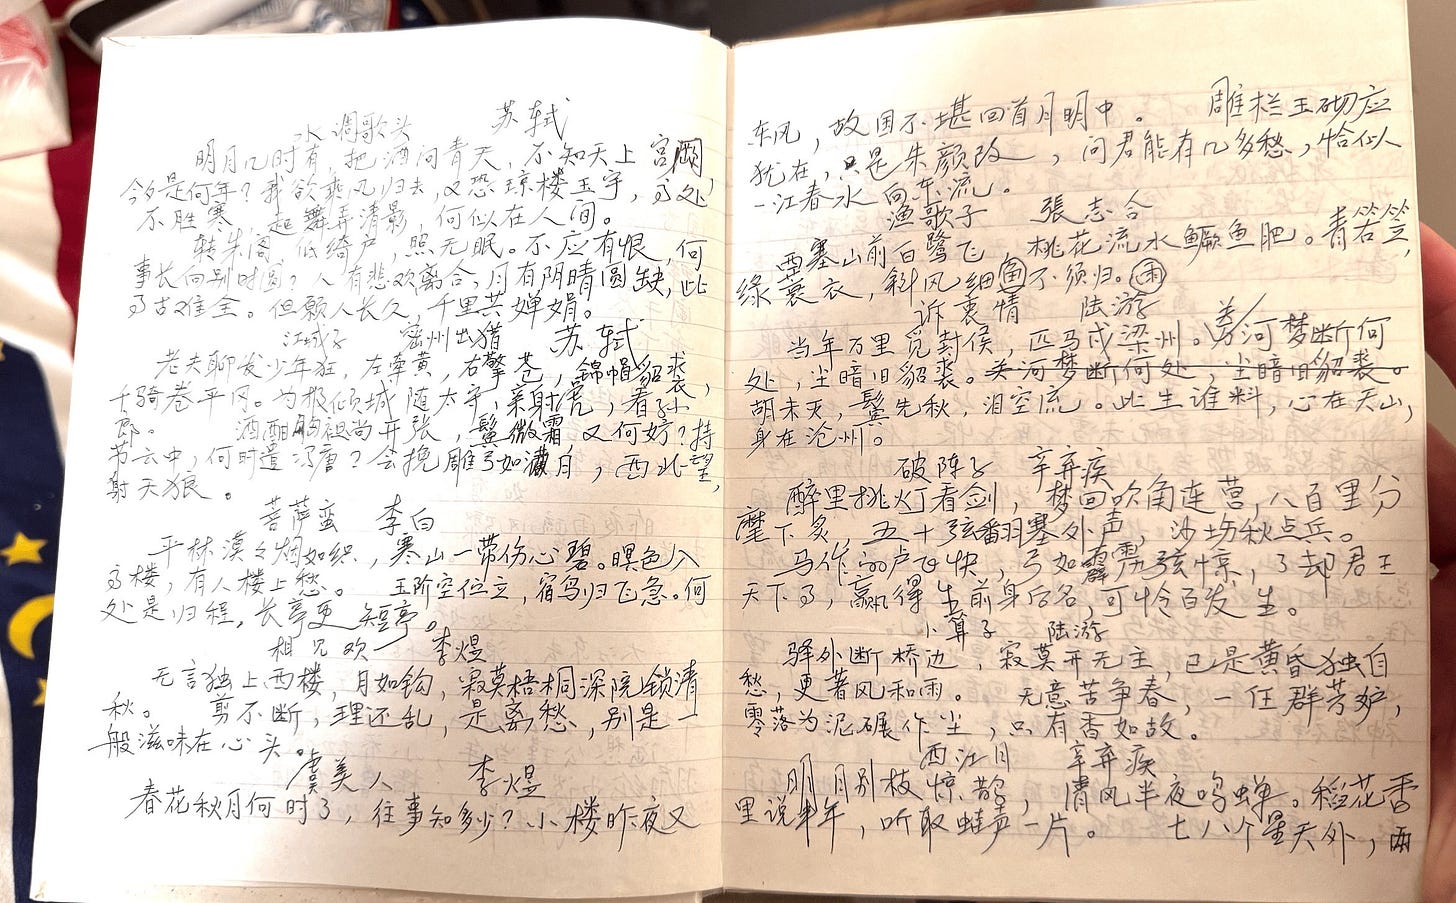 水调歌头 苏轼
明月几时有,把酒问青天,不知天上宫阙,
今夕是何年?我欲乘风归去,又恐琼楼玉宇,高处
不胜寒 起舞弄清影,何似在人间。
转朱阁,低绮户,照无眠。不应有恨,何
事长向别时圆?人有悲欢离合,月有阴晴圆缺,此
事古难全。但愿人长久,千里共婵娟。
江城子 密州出猎 苏轼
老夫聊发少年狂,左牵黄,右擎苍,錦帽貂裘,
千骑卷平冈。为报倾城随太守,亲射虎,看孙
郎。 酒酣胸袒尚开张,鬓微霜,又何妨?持
节云中,何时遣冯唐?会挽雕弓如满月,西北望,
射天狼。
菩萨蛮 李白
平林漠々烟如织,寒山一带伤心碧。暝色入
高楼,有人楼上愁。 玉阶空伫立,宿鸟归飞急。何
处是归程,长亭更短亭。
相见欢 李煜
无言独上西楼,月如钩,寂莫梧桐深院锁清
秋。 剪不断,理还乱,是离愁,别是一
般滋味在心头。
虞美人 李煜
春花秋月何时了,往事知多少?小楼昨夜又
东风,故国不堪回首月明中。 雕栏玉砌应
犹在,只是朱颜改,问君能有几多愁,恰似
一江春水向东流。
渔歌子 張志合
西塞山前白鹭飞,桃花流水鳜鱼肥。青箬笠,
绿蓑衣,斜风细雨不须归。雨
诉衷情 陆游
当年万里觅封侯,匹马戍梁州。关河梦断何
处,尘暗旧貂裘。关河梦断何处,尘暗旧貂裘。
胡未灭,鬓先秋,泪空流。此生谁料,心在天山,
身在沧州。
破陈子 辛弃疾
醉里挑灯看剑,梦回吹角连营,八百里分
麾下炙,五十弦翻塞外声,沙场秋点兵。
马作的卢飞快,弓如霹雳弦惊,了却君王
天下事,赢得生前身后名,可怜白发生。
小算子 陆游
驿外断桥边,寂莫开无主,已是黄昏独自
愁,更著风和雨。 无意苦争春,一任群芳妒,
零落为泥碾作尘,只有香如故。
西江月 辛弃疾
明月别枝惊鹊,清风半夜鸣蝉。稻花香
里说丰年,听取蛙声一片。 七八个星天外,两